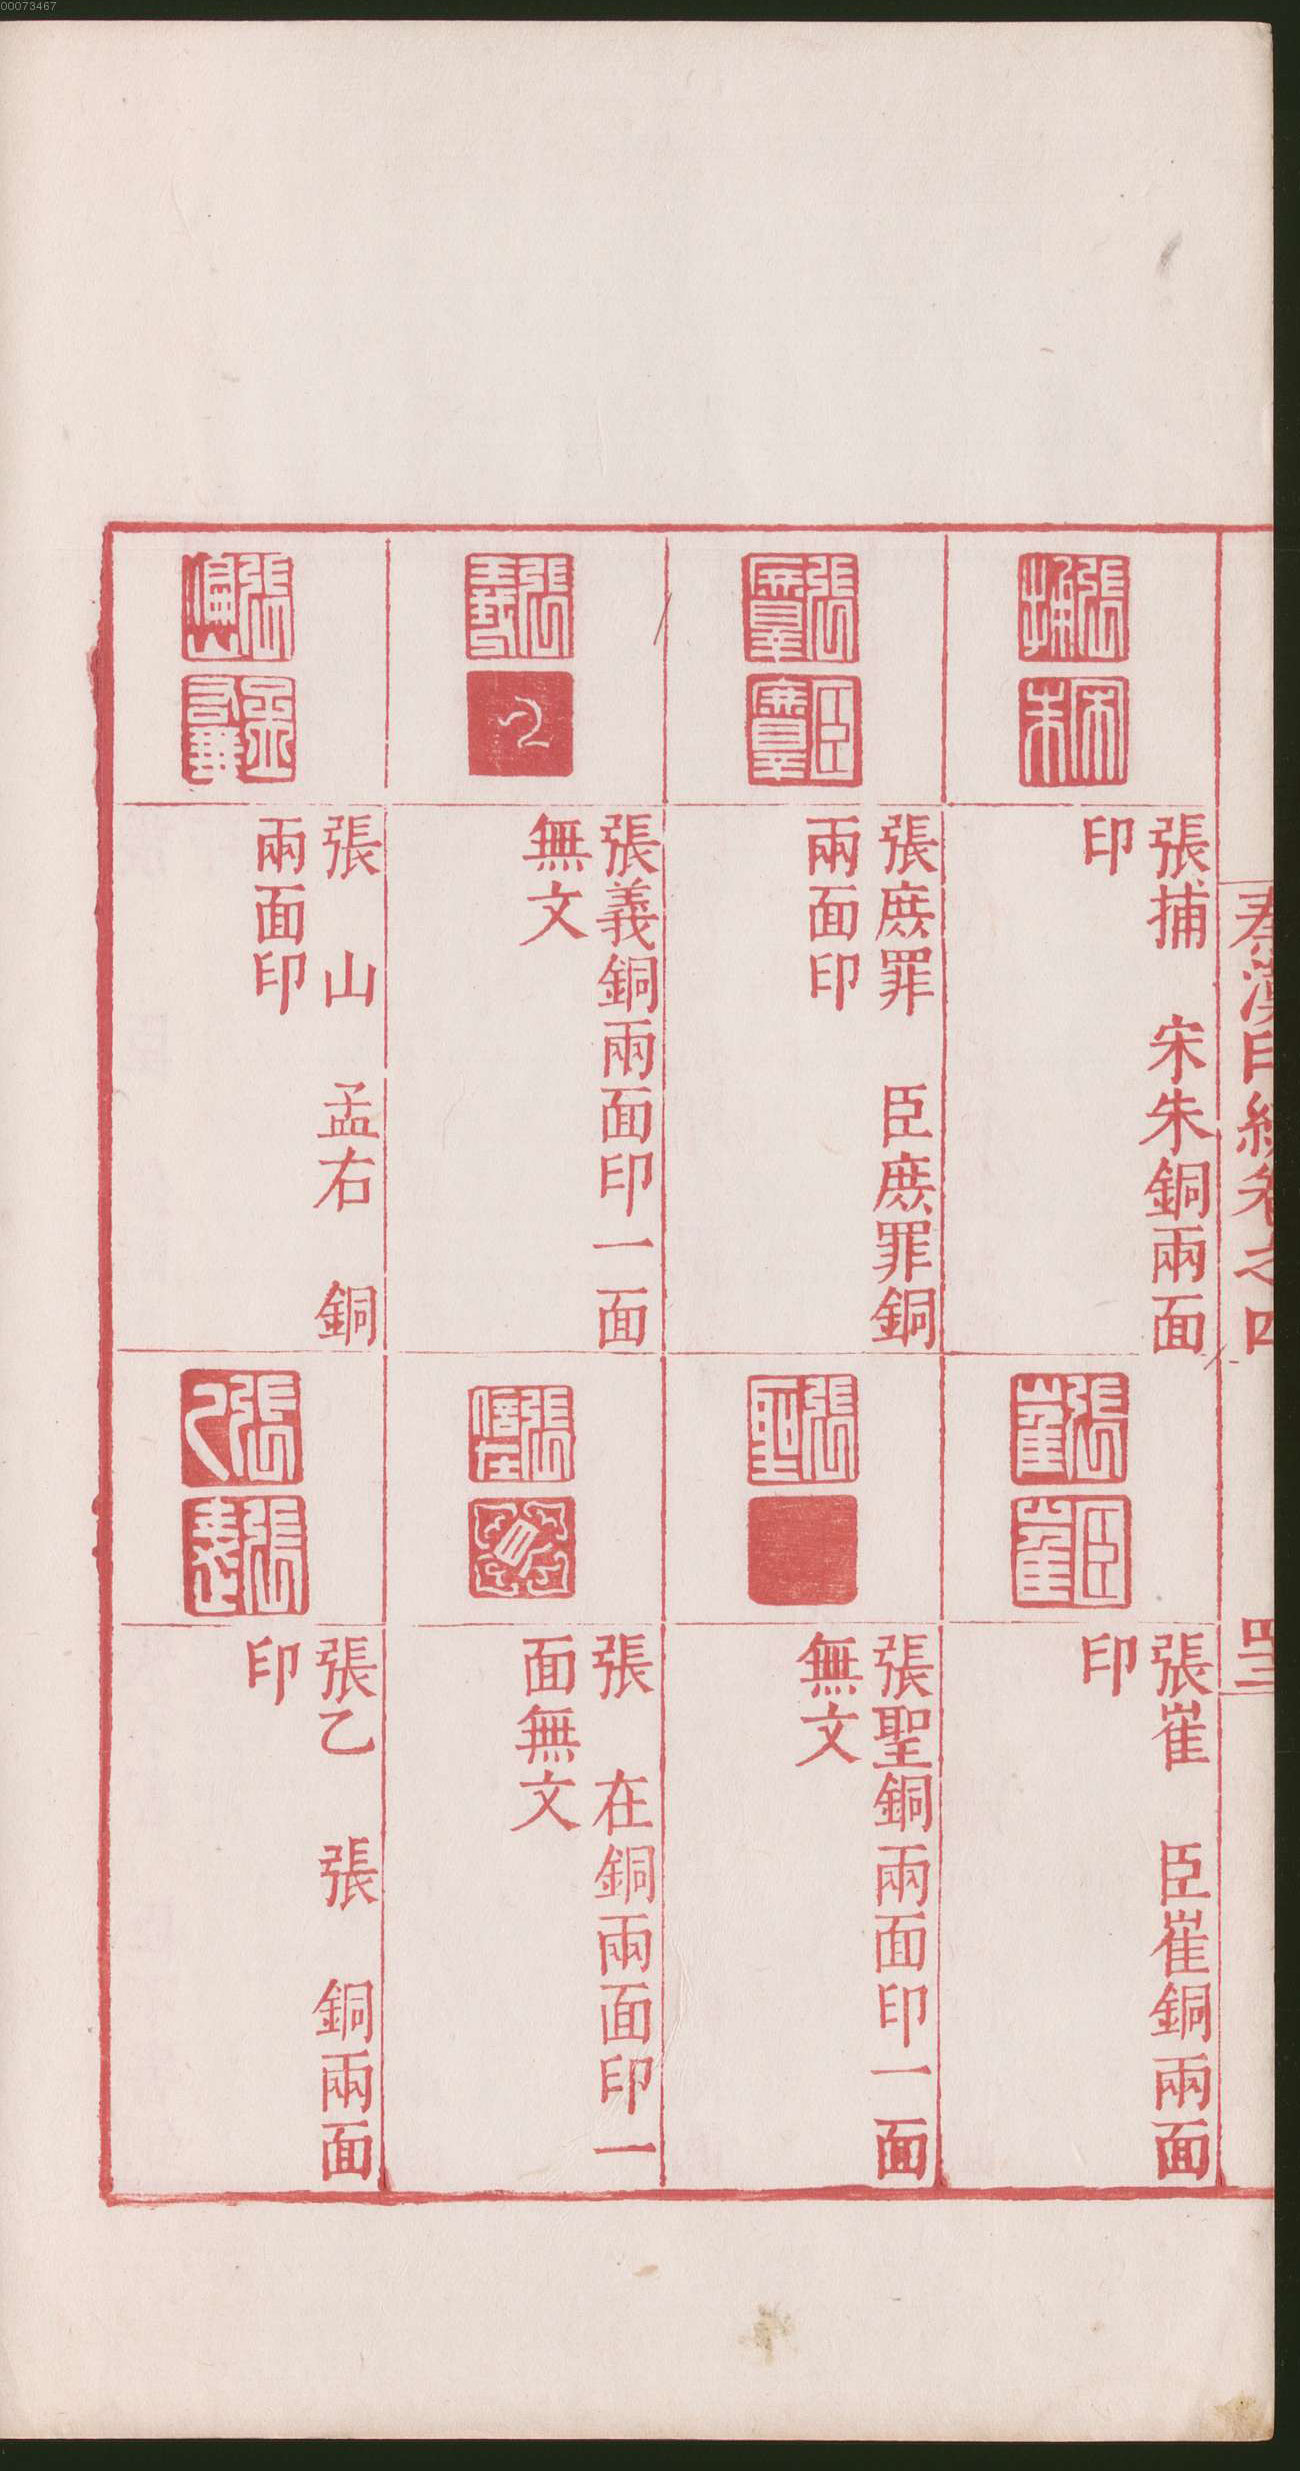 00073467
秦漢印統卷之四
四三
張捕　宋朱銅兩面
印
張庶罪　臣庶罪銅
兩面印
張義銅兩面印一面
無文
張　山　孟右　銅
兩面印
張崔　臣崔銅兩面
印
張聖銅兩面印一面
無文
張　在銅兩面印一
面無文
張乙　張　銅兩面
印